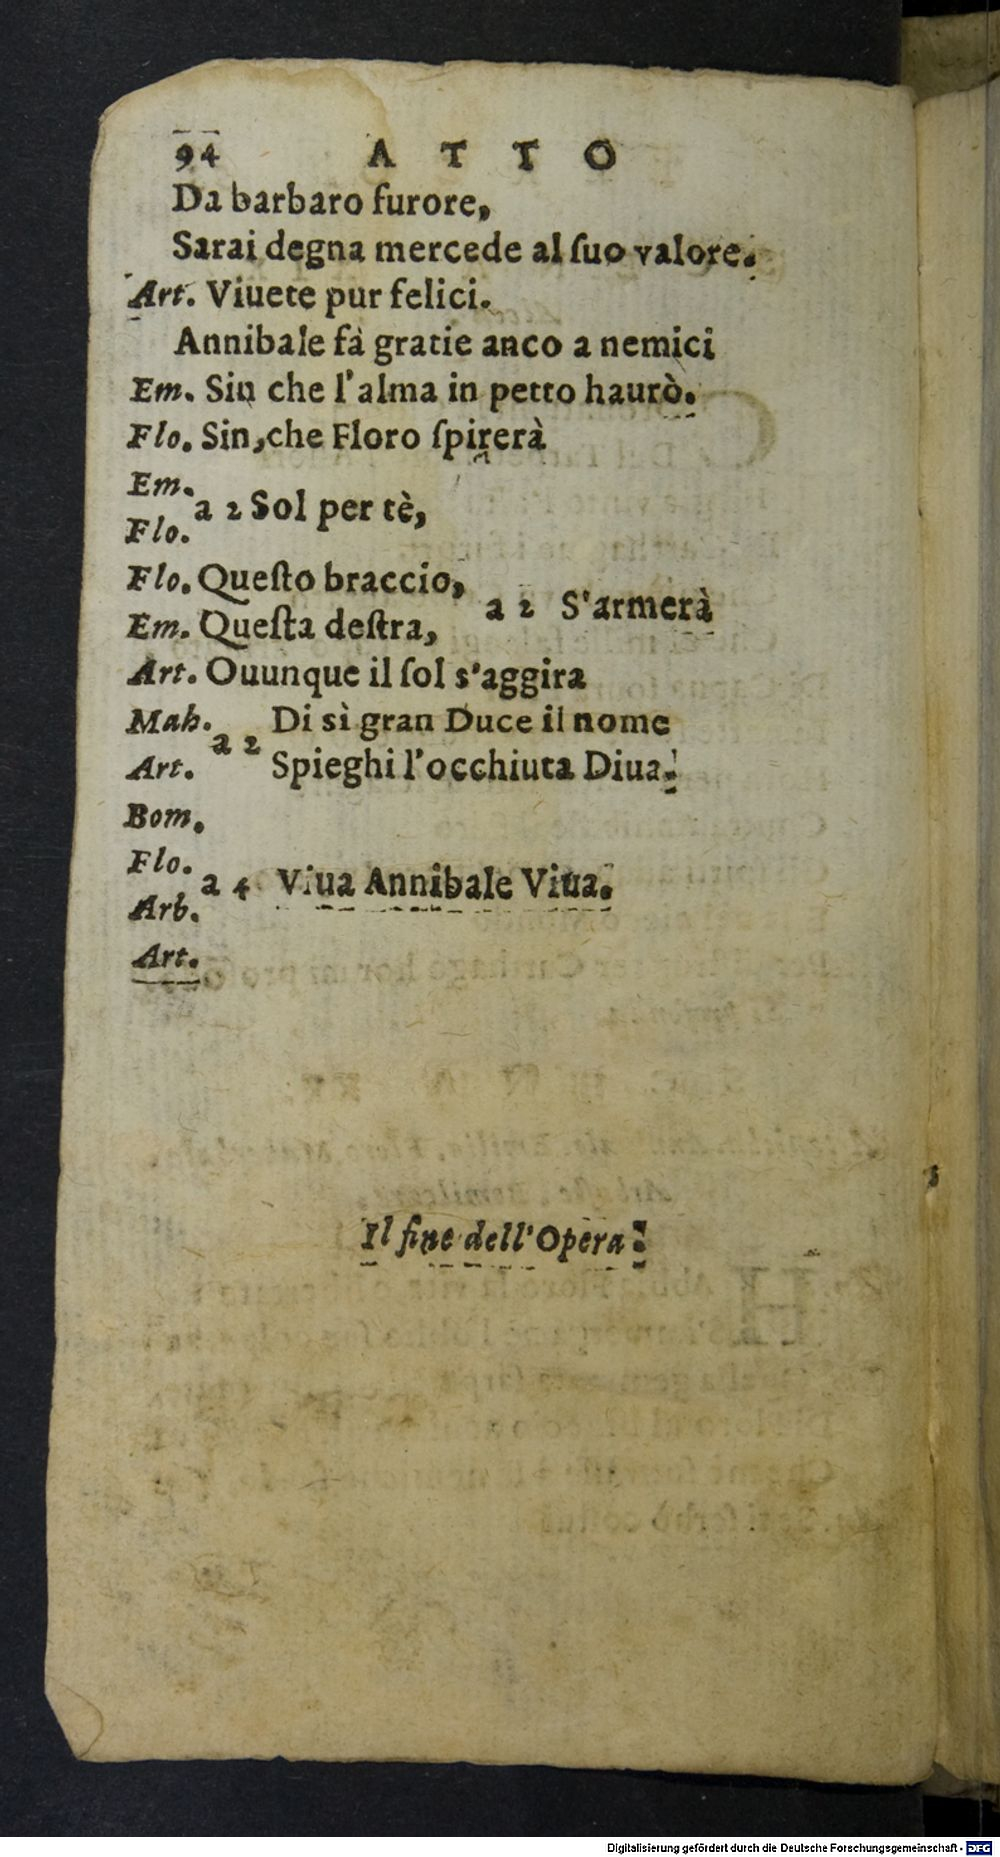 94 ATTO
Da barbaro furore,
Sarai degna mercede al ſuo valore.
Art. Viuete pur felici.
Annibale fà gratie anco a nemici
Em. Sin che l'alma in petto haurò.
Flo. Sin, che Floro ſpirerà
Em.
Flo.
a 2 Sol per tè,
Flo. Queſto braccio,
Em. Queſta deſtra,
a 2 S'armerà
Art. Ouunque il ſol s'aggira
Mah. Di sì gran Duce il nome
a 2
Art. Spieghi l'occhiuta Diua.
Bom.
Flo.
a 4 Viua Annibale Viua.
Arb.
Art.
Il fine dell'Opera.
Digitalisierung gefördert durch die Deutsche Forschungsgemeinschaft - DFG